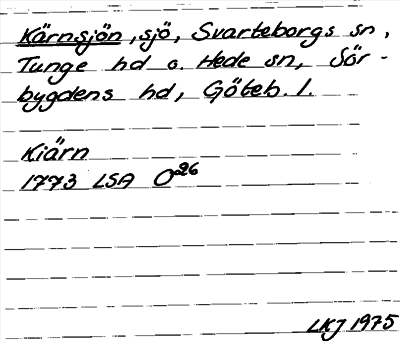 Kärnsjön, sjö, Svarteborgs sn,
Tunge hd o. Hede sn, Sör-
bygdens hd, Göteb. l.
Kiärn
1773 LSA O²⁶
LKJ 1975